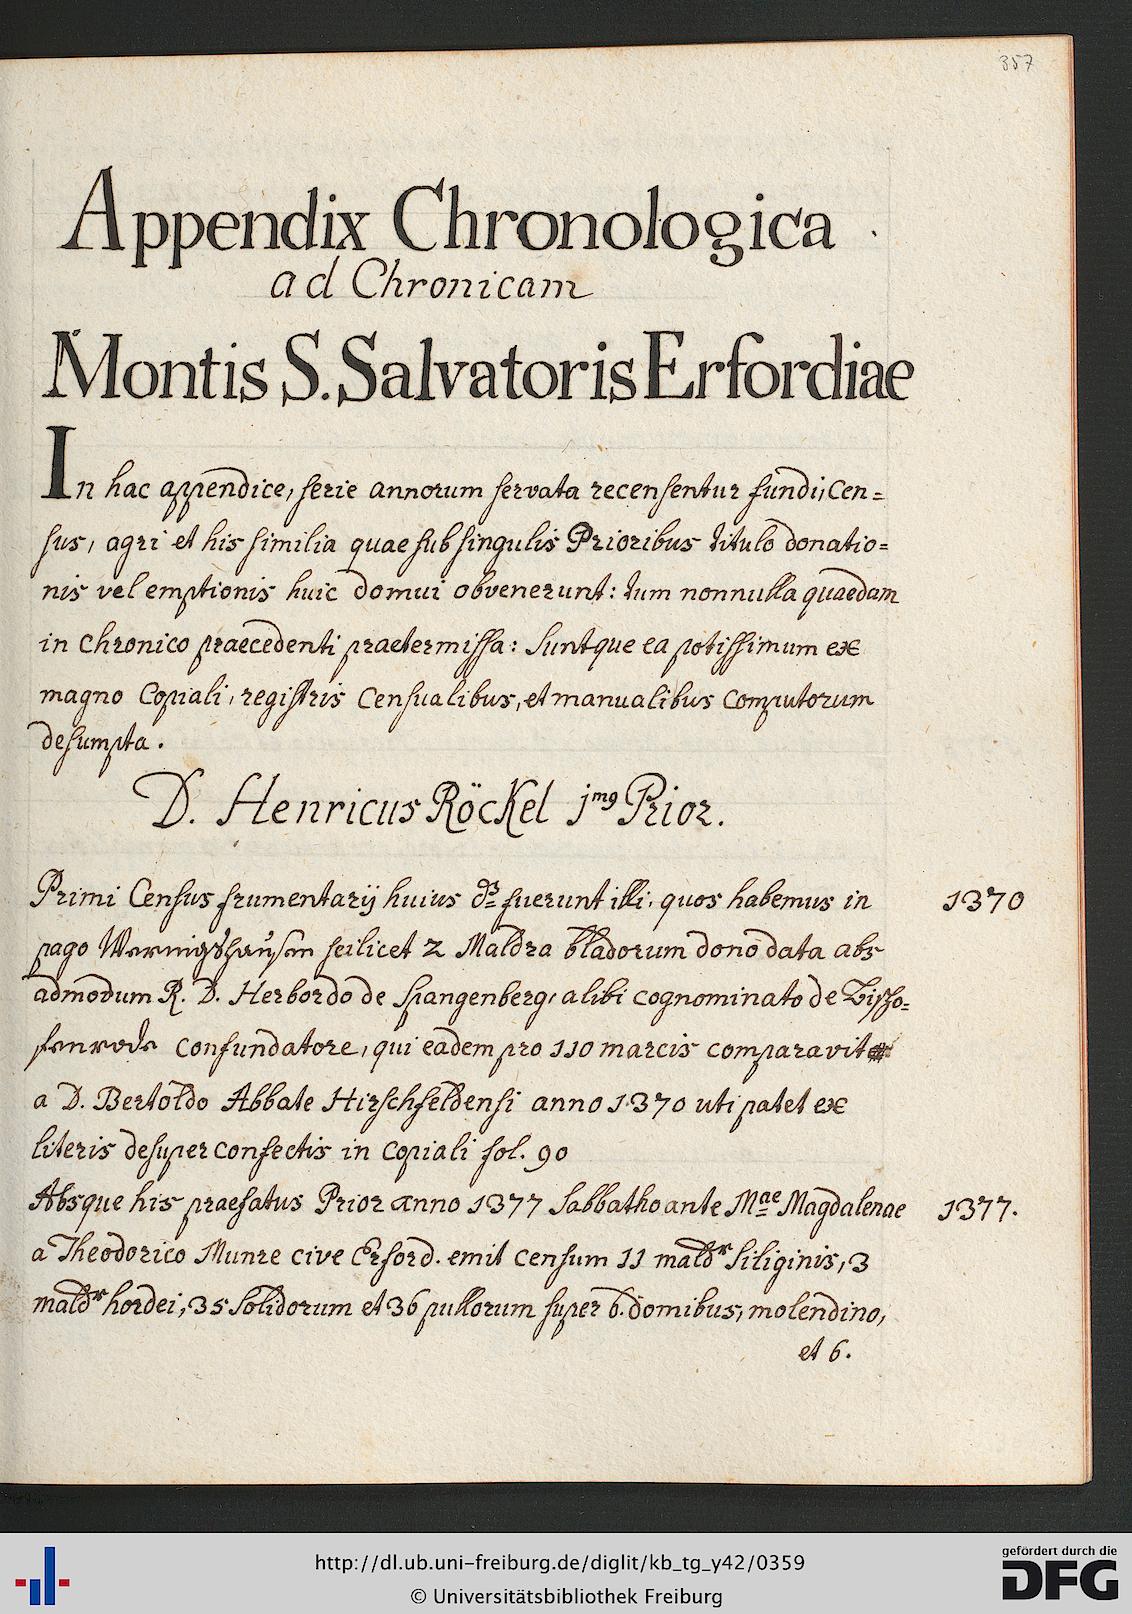 357
Appendix Chronologica
ad Chronicam
Montis S. Salvatoris Erfordiae
In hac appendice, serie annorum servata recensentur fundi, Cen=
sus, agri et his similia quae sub singulis Prioribus titulo donatio=
nis vel emptionis huic domui obvenerunt: tum nonnulla quaedam
in Chronico praecedenti praetermissa: Suntque ea potissimum ex
magno Copiali, registris Censualibus, et manualibus Computorum
desumpta.
D. Henricus Röckel jmꝯ Prior.
Primi Census frumentarij huius fuerunt illi, quos habemus in
1370
pago Wernigshausen scilicet 2 Maldra bladorum dono data abs
admodum R. D. Herbordo de Spangenberg, alibi cognominato de Bischo=
fenrode Confundatore, qui eadem pro 110 marcis comparavit
a D. Bertoldo Abbate Hirschfeldensi anno 1370 uti patet ex
literis desuper confectis in Copiali fol. 90
Absque his praefatus Prior anno 1377 Sabbatho ante Mae Magdalenae
1377.
a Theodorico Munre cive Erford. emit censum 11 maldr Siliginis, 3
maldr hordei, 35 Solidorum et 36 pullorum super 6. domibus, molendino,
et 6.
http://dl.ub.uni-freiburg.de/diglit/kb_tg_y42/0359
© Universitätsbibliothek Freiburg
gefördert durch die
DFG